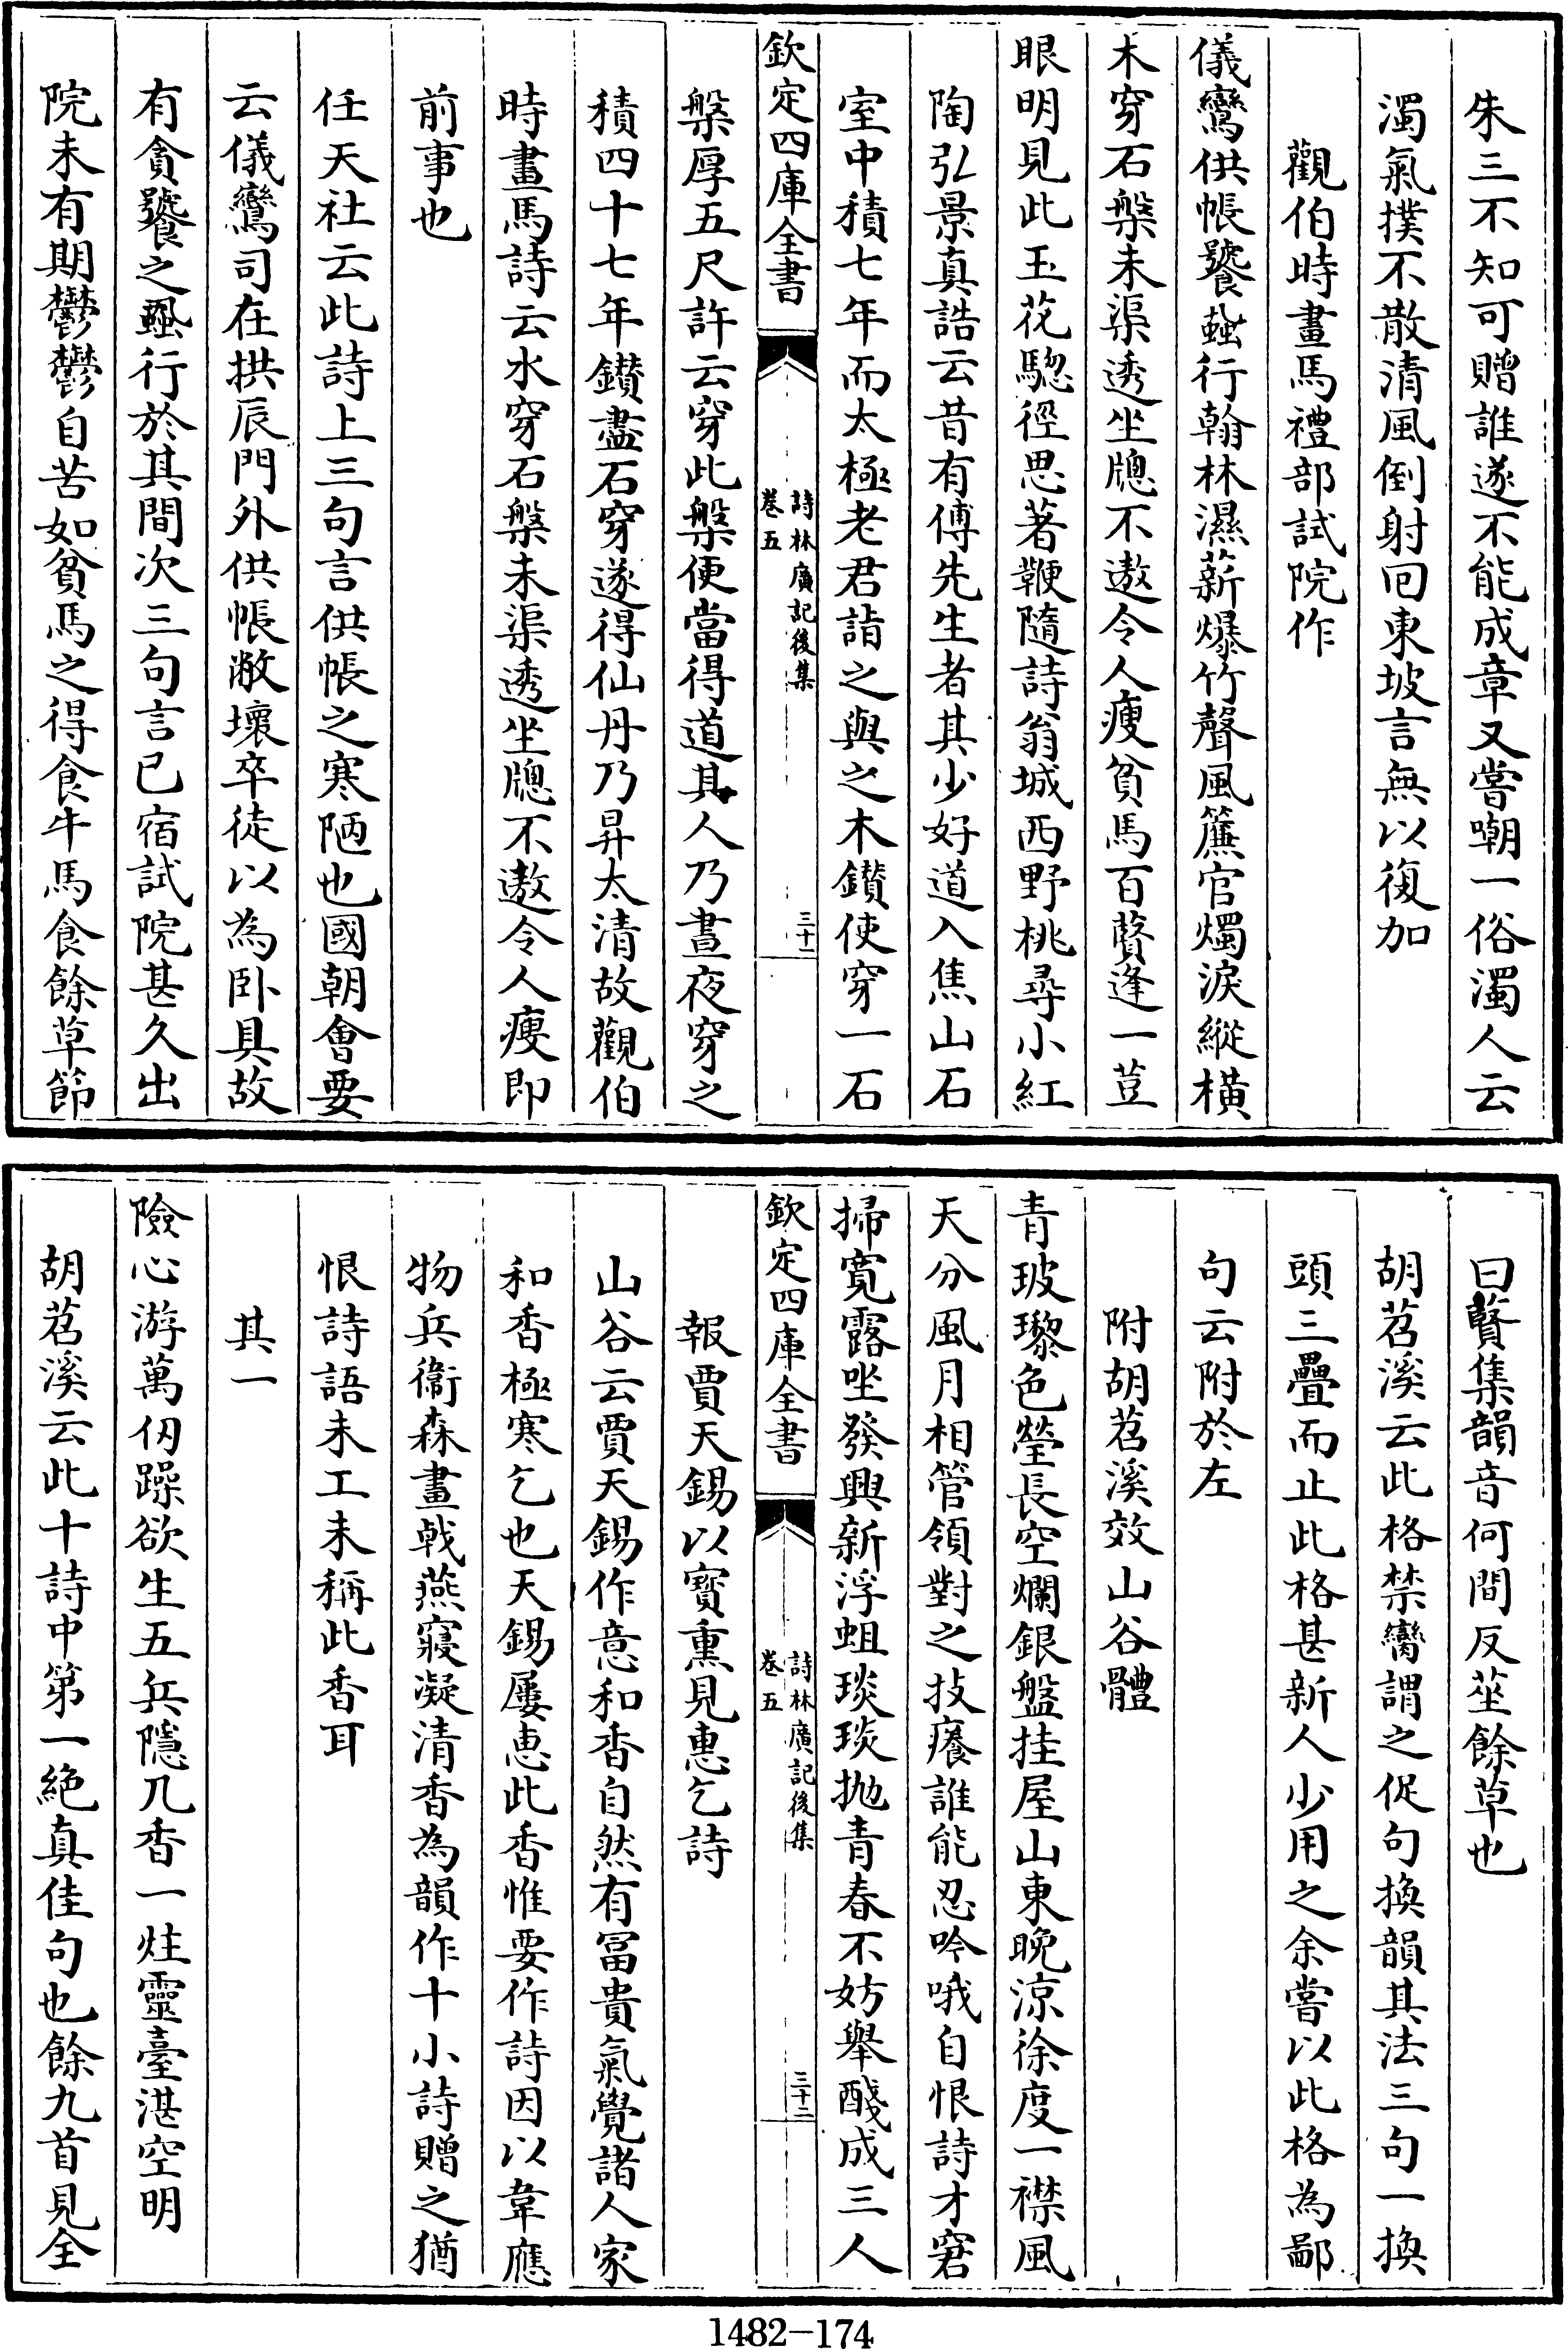 朱三不知可贈誰遂不能成章又嘗嘲一俗濁人云
濁氣撲不散清風倒射回東坡言無以復加
觀伯時畫馬禮部試院作
儀鸞供帳饕蝨行翰林濕薪爆竹聲風簾官燭淚縱橫
木穿石槃未渠透坐牎不遨令人瘦貧馬百䝱逢一荳
眼明見此玉花騘徑思著鞭隨詩翁城西野桃尋小紅
陶弘景真誥云昔有傅先生者其少好道入焦山石
室中積七年而太極老君詣之與之木鑚使穿一石
欽定四庫全書
詩林廣記後集
卷五
三十一
槃厚五尺許云穿此槃便當得道其人乃晝夜穿之
積四十七年鑚盡石穿遂得仙丹乃昇太清故觀伯
時畫馬詩云水穿石槃未渠透坐牎不遨令人瘦即
前事也
任天社云此詩上三句言供帳之寒陋也國朝會要
云儀鸞司在拱辰門外供帳敝壞卒徒以為卧具故
有貪饕之蝨行於其間次三句言已宿試院甚久出
院未有期鬱鬱自苦如貧馬之得食牛馬食餘草節
曰䝱集韻音何間反莝餘草也
胡苕溪云此格禁臠謂之促句換韻其法三句一換
頭三疊而止此格甚新人少用之余嘗以此格為鄙
句云附於左
附胡苕溪效山谷體
青玻瓈色瑩長空爛銀盤挂屋山東晚涼徐度一襟風
天分風月相管領對之技癢誰能忍吟哦自恨詩才窘
掃寬露坐發興新浮蛆琰琰拋青春不妨舉醆成三人
欽定四庫全書
詩林廣記後集
卷五
三十二
報賈天錫以寳熏見惠乞詩
山谷云賈天錫作意和香自然有冨貴氣覺諸人家
和香極寒乞也天錫屢恵此香惟要作詩因以韋應
物兵衞森畫戟燕寢凝清香為韻作十小詩贈之猶
恨詩語未工未稱此香耳
其一
險心游萬仭躁欲生五兵隱几香一炷靈臺湛空明
胡苕溪云此十詩中第一絶真佳句也餘九首見全
1482-174